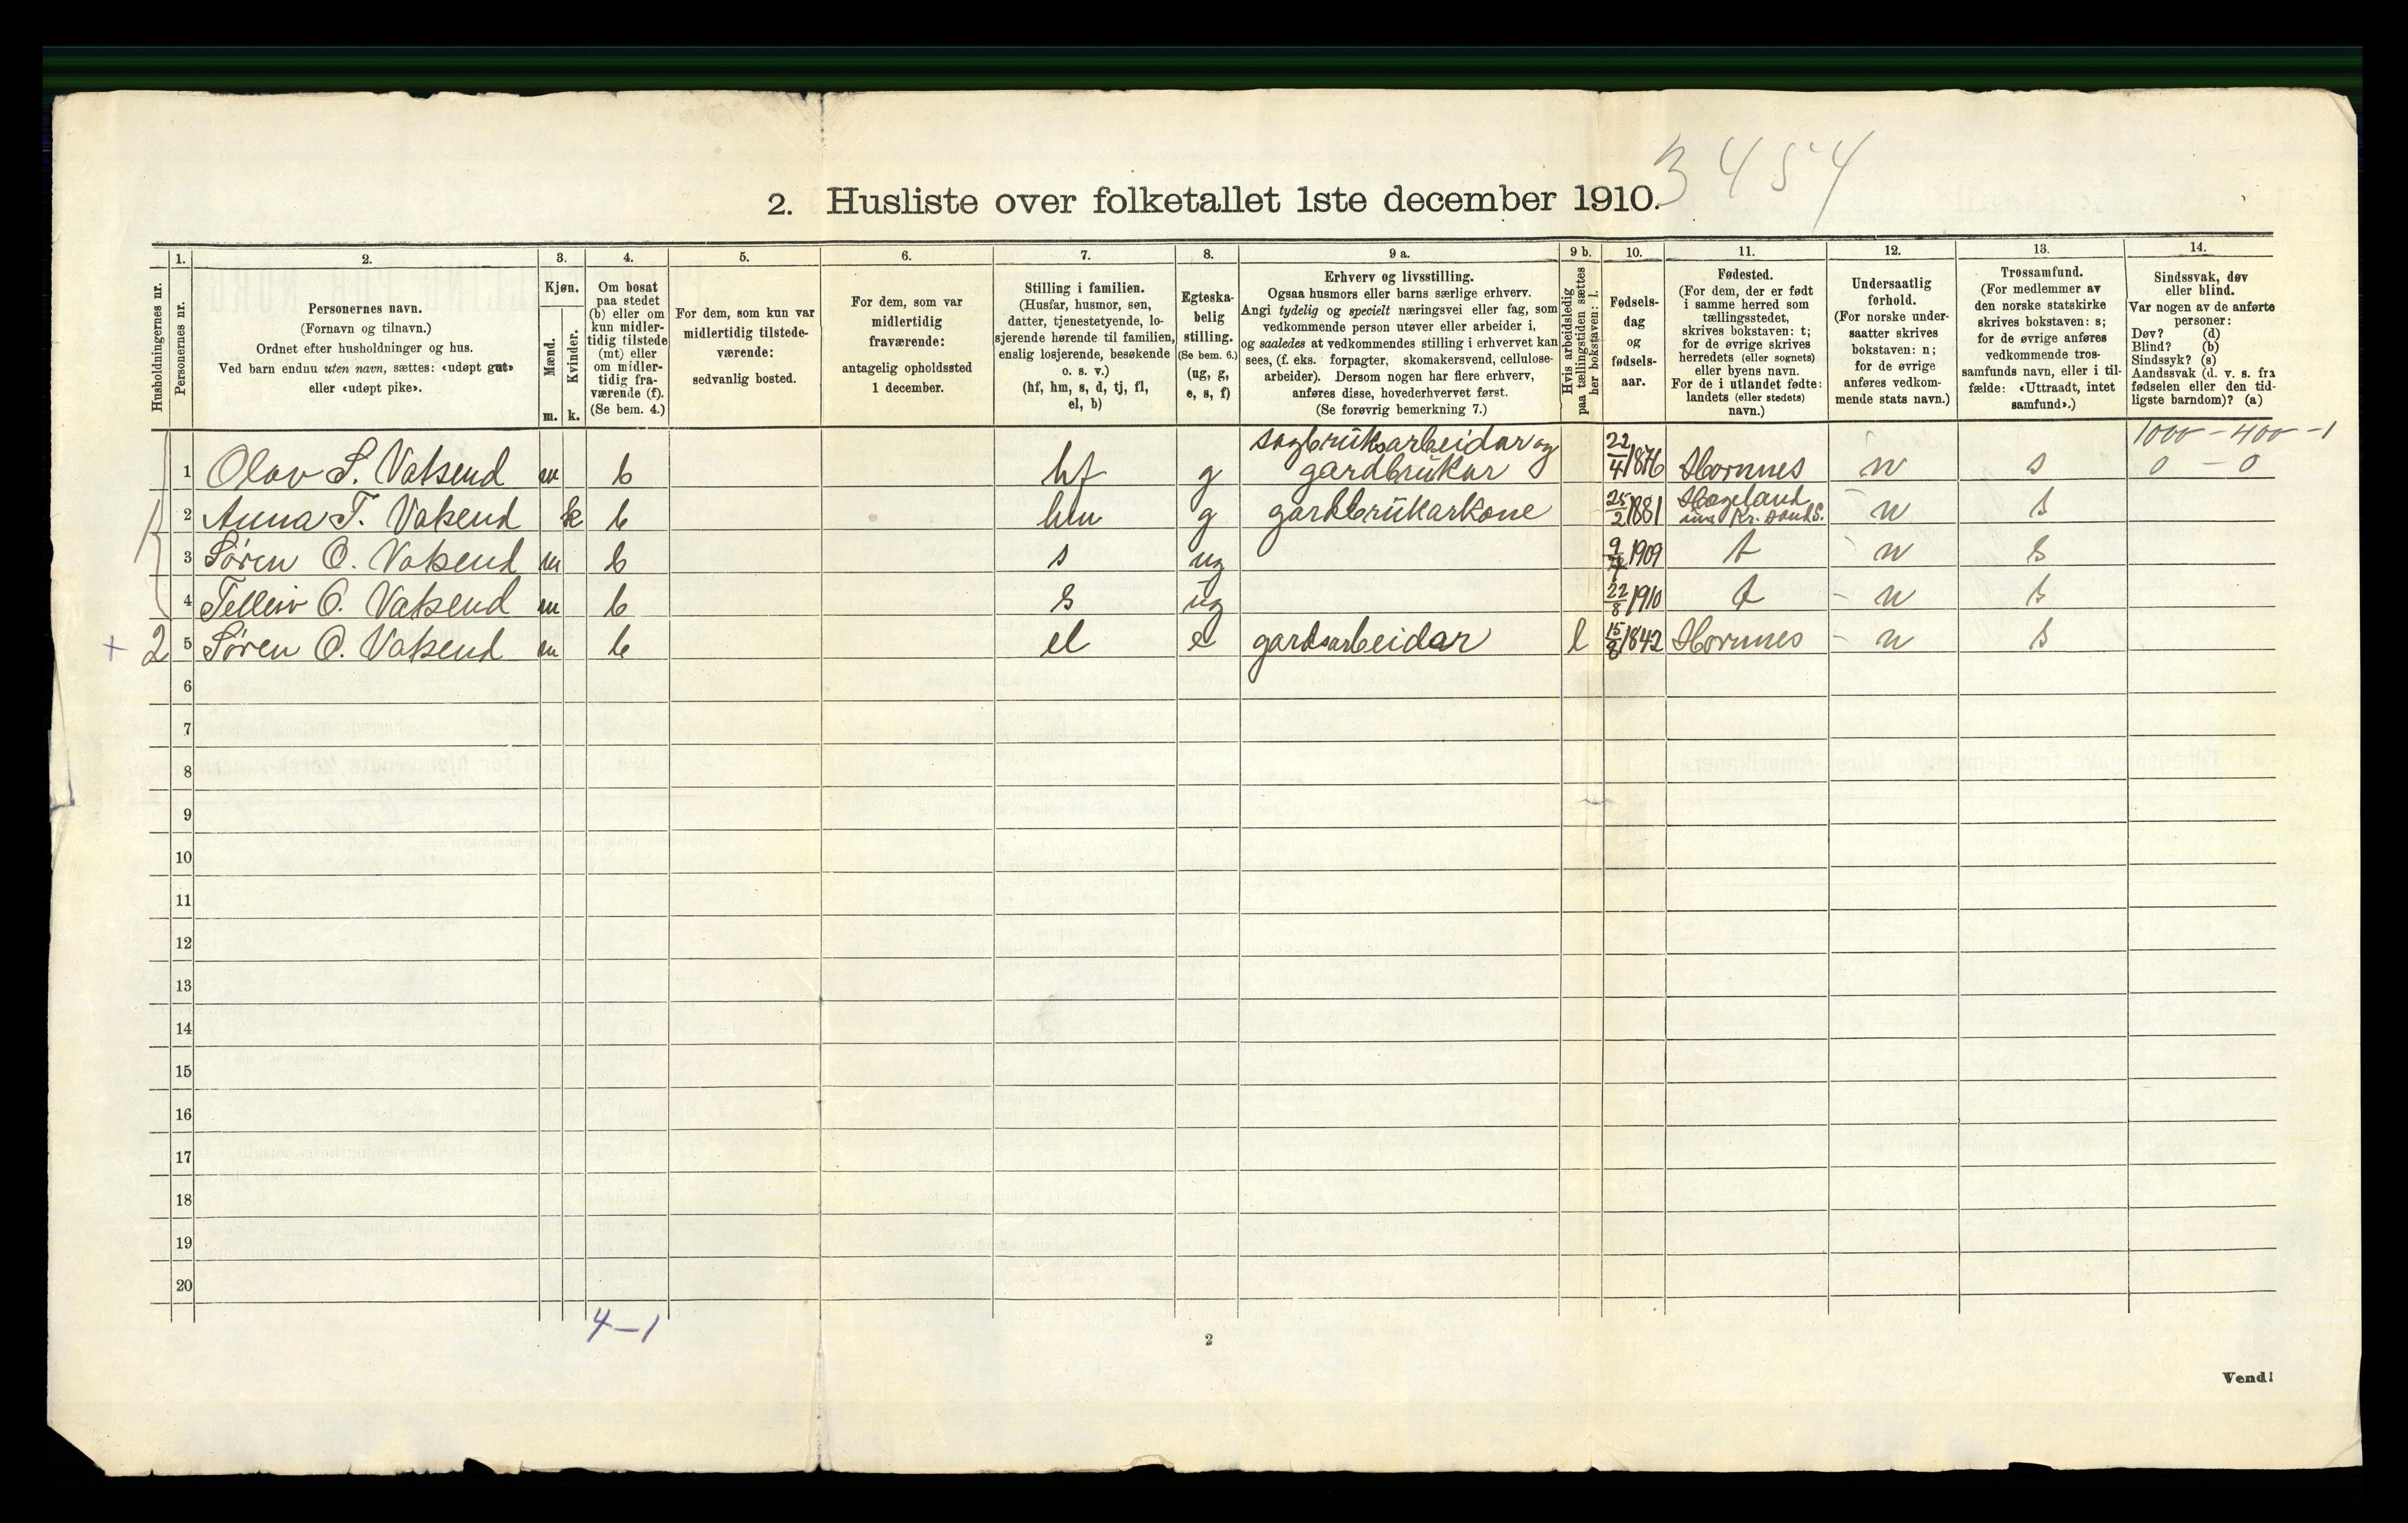 3454
2. Husliste over folketallet 1ste december 1910.
Husholdningernes nr.
1.
Personernes nr.
2.
Personernes navn.
(Fornavn og tilnavn.)
Ordnet efter husholdninger og hus.
Ved barn endnu uten navn, sættes: «udøpt gut»
eller «udøpt pike».
3.
Kjøn.
Mænd.
Kvinder.
m. k.
4.
Om bosat
paa stedet
(b) eller om
kun midler-
tidig tilstede
(mt) eller
om midler-
tidig fra-
værende (f).
(Se bem. 4.)
5.
For dem, som kun var
midlertidig tilstede-
værende:
sedvanlig bosted.
6.
For dem, som var
midlertidig
fraværende:
antagelig opholdssted
1 december.
7.
Stilling i familien.
(Husfar, husmor, søn,
datter, tjenestetyende, lo-
sjerende hørende til familien,
enslig losjerende, besøkende
o. s. v.)
(hf, hm, s, d, tj, fl,
el, b)
8.
Egteska-
belig
stilling.
(Se bem. 6.)
(ug, g,
e, s, f)
9 a.
Erhverv og livsstilling.
Ogsaa husmors eller barns særlige erhverv.
Angi tydelig og specielt næringsvei eller fag, som
vedkommende person utøver eller arbeider i,
og saaledes at vedkommendes stilling i erhvervet kan
sees, (f. eks. forpagter, skomakersvend, cellulose-
arbeider). Dersom nogen har flere erhverv,
anføres disse, hovederhvervet først.
(Se forøvrig bemerkning 7.)
9 b.
Hvis arbeidsledig
paa tællingstiden sættes
her bokstaven: l.
10.
Fødsels-
dag
og
fødsels-
aar.
11.
Fødested.
(For dem, der er født
i samme herred som
tællingsstedet,
skrives bokstaven: t;
for de øvrige skrives
herredets (eller sognets)
eller byens navn.
For de i utlandet fødte:
landets (eller stedets)
navn.)
12.
Undersaatlig
forhold.
(For norske under-
saatter skrives
bokstaven: n;
for de øvrige
anføres vedkom-
mende stats navn.)
13.
Trossamfund.
(For medlemmer av
den norske statskirke
skrives bokstaven: s;
for de øvrige anføres
vedkommende tros-
samfunds navn, eller i til-
fælde: «Uttraadt, intet
samfund».)
14.
Sindssvak, døv
eller blind.
Var nogen av de anførte
personer:
Døv? (d)
Blind? (b)
Sindssyk? (s)
Aandssvak (d. v. s. fra
fødselen eller den tid-
ligste barndom)? (a)
sagbruksarbeidar og 1000 - 400 - 1
1 Olav S. Vatsend m b hf g gardbrukar 22/4 1876 Hornnes n s 0 - 0
1 2 Anna T. Vatsend k b hm g gardbrukarkone 25/2 1881 Hægeland n s
3 Søren O. Vatsend m b s ug 1909 t n s
4 Tellew O. Vatsend m b s ug 22/8 1910 t n s
+ 2 5 Søren O. Vatsend m b el e gardsarbeidar l 15/8 1842 Hornnes n s
6
7
8
9
10
11
12
13
14
15
16
17
18
19
20
4-1
2
Vend!